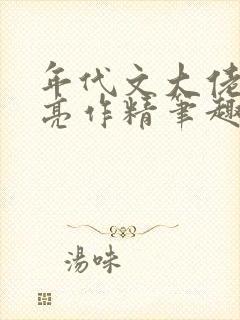 年代文大佬
亮作精笔趣
湯味